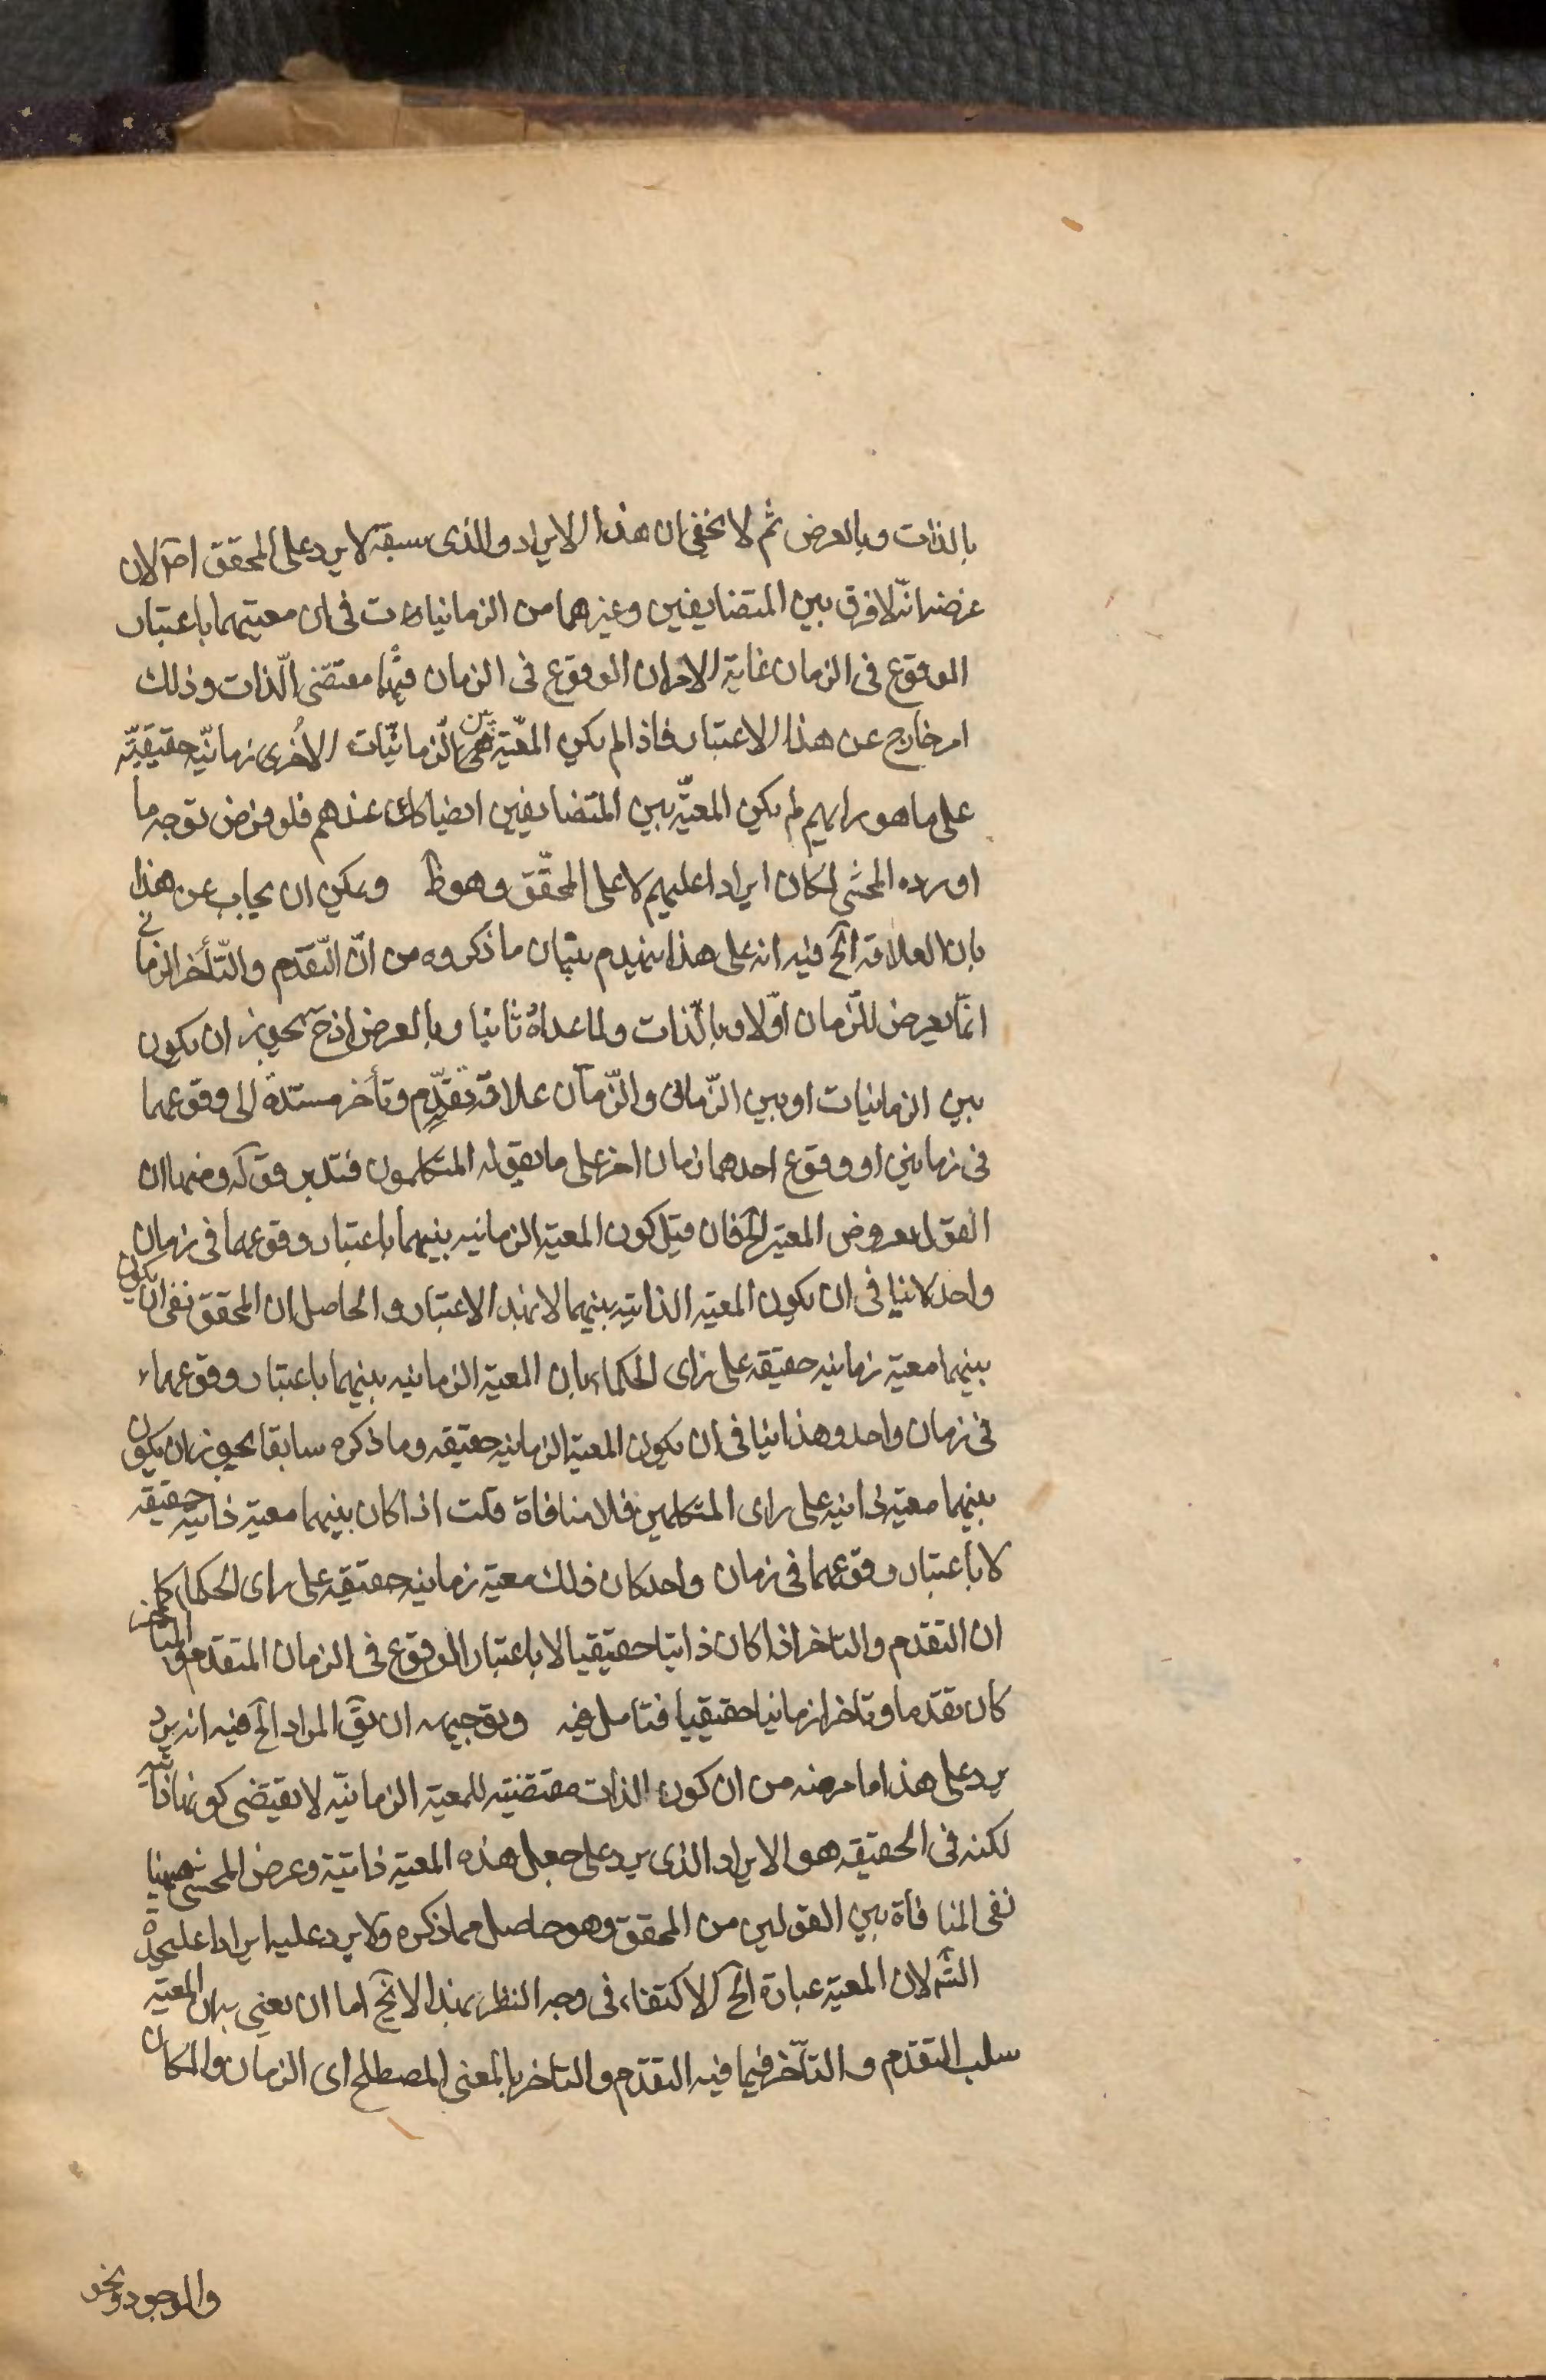 بالذات وبالعرض ثم لا يخفى ان هذا الايراد والذى سبقه لا يرد على المحقق اصلا لان
غرضه انه لا فرق بين المتضايفين وغيرهما من الزمانيات فى ان معيتهما باعتبار
الوقوع فى الزمان غاية الامر ان الوقوع فى الزمان فيهما مقتضى الذات وذلك
امر خارج عن هذا الاعتبار فاذا لم يكن المعية بين الزمانيات الاخرى زمانية حقيقية
على ما هو رايهم لم يكن المعية بين المتضايفين ايضا كك عندهم فلو فرض توجه ما
اورده المحشى لكان ايرادا عليهم لا على المحقق وهو ظ ويمكن ان يجاب عن هذا
بان العلاقة الخ فيه انه على هذا ينهدم بنيان ما ذكروه من ان التقدم والتأخر الزمانى
انما يعرض للزمان اولا وبالذات ولما عداه ثانيا وبالعرض اذ ح يجوز ان يكون
بين الزمانيات او بين الزمانى والزمان علاقة تقدم وتأخر مستندة الى وقوعهما
فى زمانين او وقوع احدهما زمان اخر على ما يقوله المتكلمون فتدبر قوله ومنها ان
القول بعروض المعية الخ فان قيل كون المعية الزمانيه بينهما باعتبار وقوعهما فى زمان
واحد لا ينافى ان يكون المعيه الذاتيه بينهما لا بهذا الاعتبار والحاصل ان المحقق نفى ان يكون
بينهما معية زمانيه حقيقه على راى الحكماء بان المعية الزمانيه بينهما باعتبار وقوعهما
فى زمان واحد وهذا ينافى ان يكون المعية الزمانيه حقيقه وما ذكره سابقا يجوز ان يكون
بينهما معية ذاتيه على راى المتكلمين فلا منافاة قلت اذا كان بينهما معية ذاتيه حقيقه
لا باعتبار وقوعهما فى زمان واحد كان ذلك معية زمانيه حقيقيه على راى الحكماء كما
ان التقدم والتاخر اذا كان ذاتيا حقيقيا لا باعتبار الوقوع فى الزمان المتقدم والمتأخر
كان تقدما وتاخرا زمانيا حقيقيا فتامل فيه وتوجيهه ان يق المراد الخ فيه انه يرد
يرد على هذا ما مر منه من ان كون الذات مقتضيه للمعية الزمانيه لا يقتضى كونها ذاتية
لكنه فى الحقيقه هو الايراد الذى يرد على جعل هذه المعية ذاتية وغرض المحشى ههنا
نفى المنافاة بين القولين من المحقق وهو حاصل مما ذكره ولا يرد عليه ايرادا عليحدة
الشه لان المعية عبارة الخ الاكتفاء فى وجه النظر بهذا لا يخ اما ان يعنى به ان المعيه
سلب التقدم والتأخر فيما فيه التقدم والتاخر بالمعنى المصطلح اى الزمان والمكان
والوجود ونحو